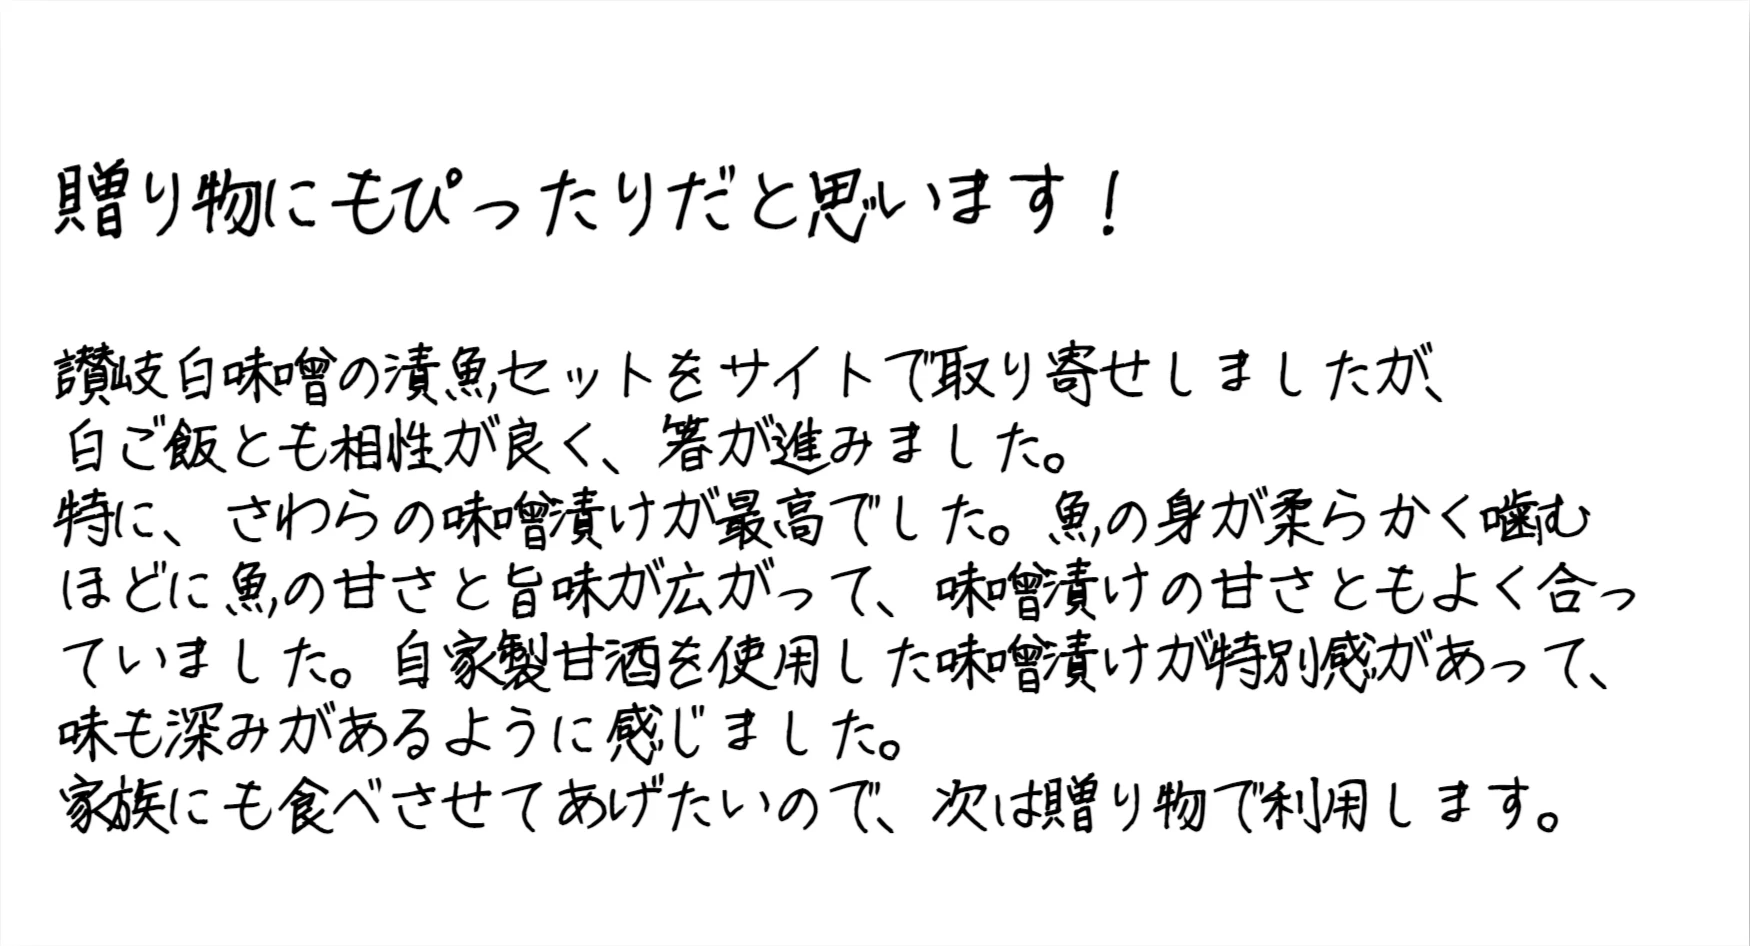 贈り物にもぴったりだと思います！
讃岐白味噌の漬魚セットをサイトで取り寄せしましたが、
白ご飯とも相性が良く、箸が進みました。
特に、さわらの味噌漬けが最高でした。魚の身が柔らかく噛む
ほどに魚の甘さと旨味が広がって、味噌漬けの甘さともよく合っ
ていました。自家製甘酒を使用した味噌漬けが特別感があって、
味も深みがあるように感じました。
家族にも食べさせてあげたいので、次は贈り物で利用します。